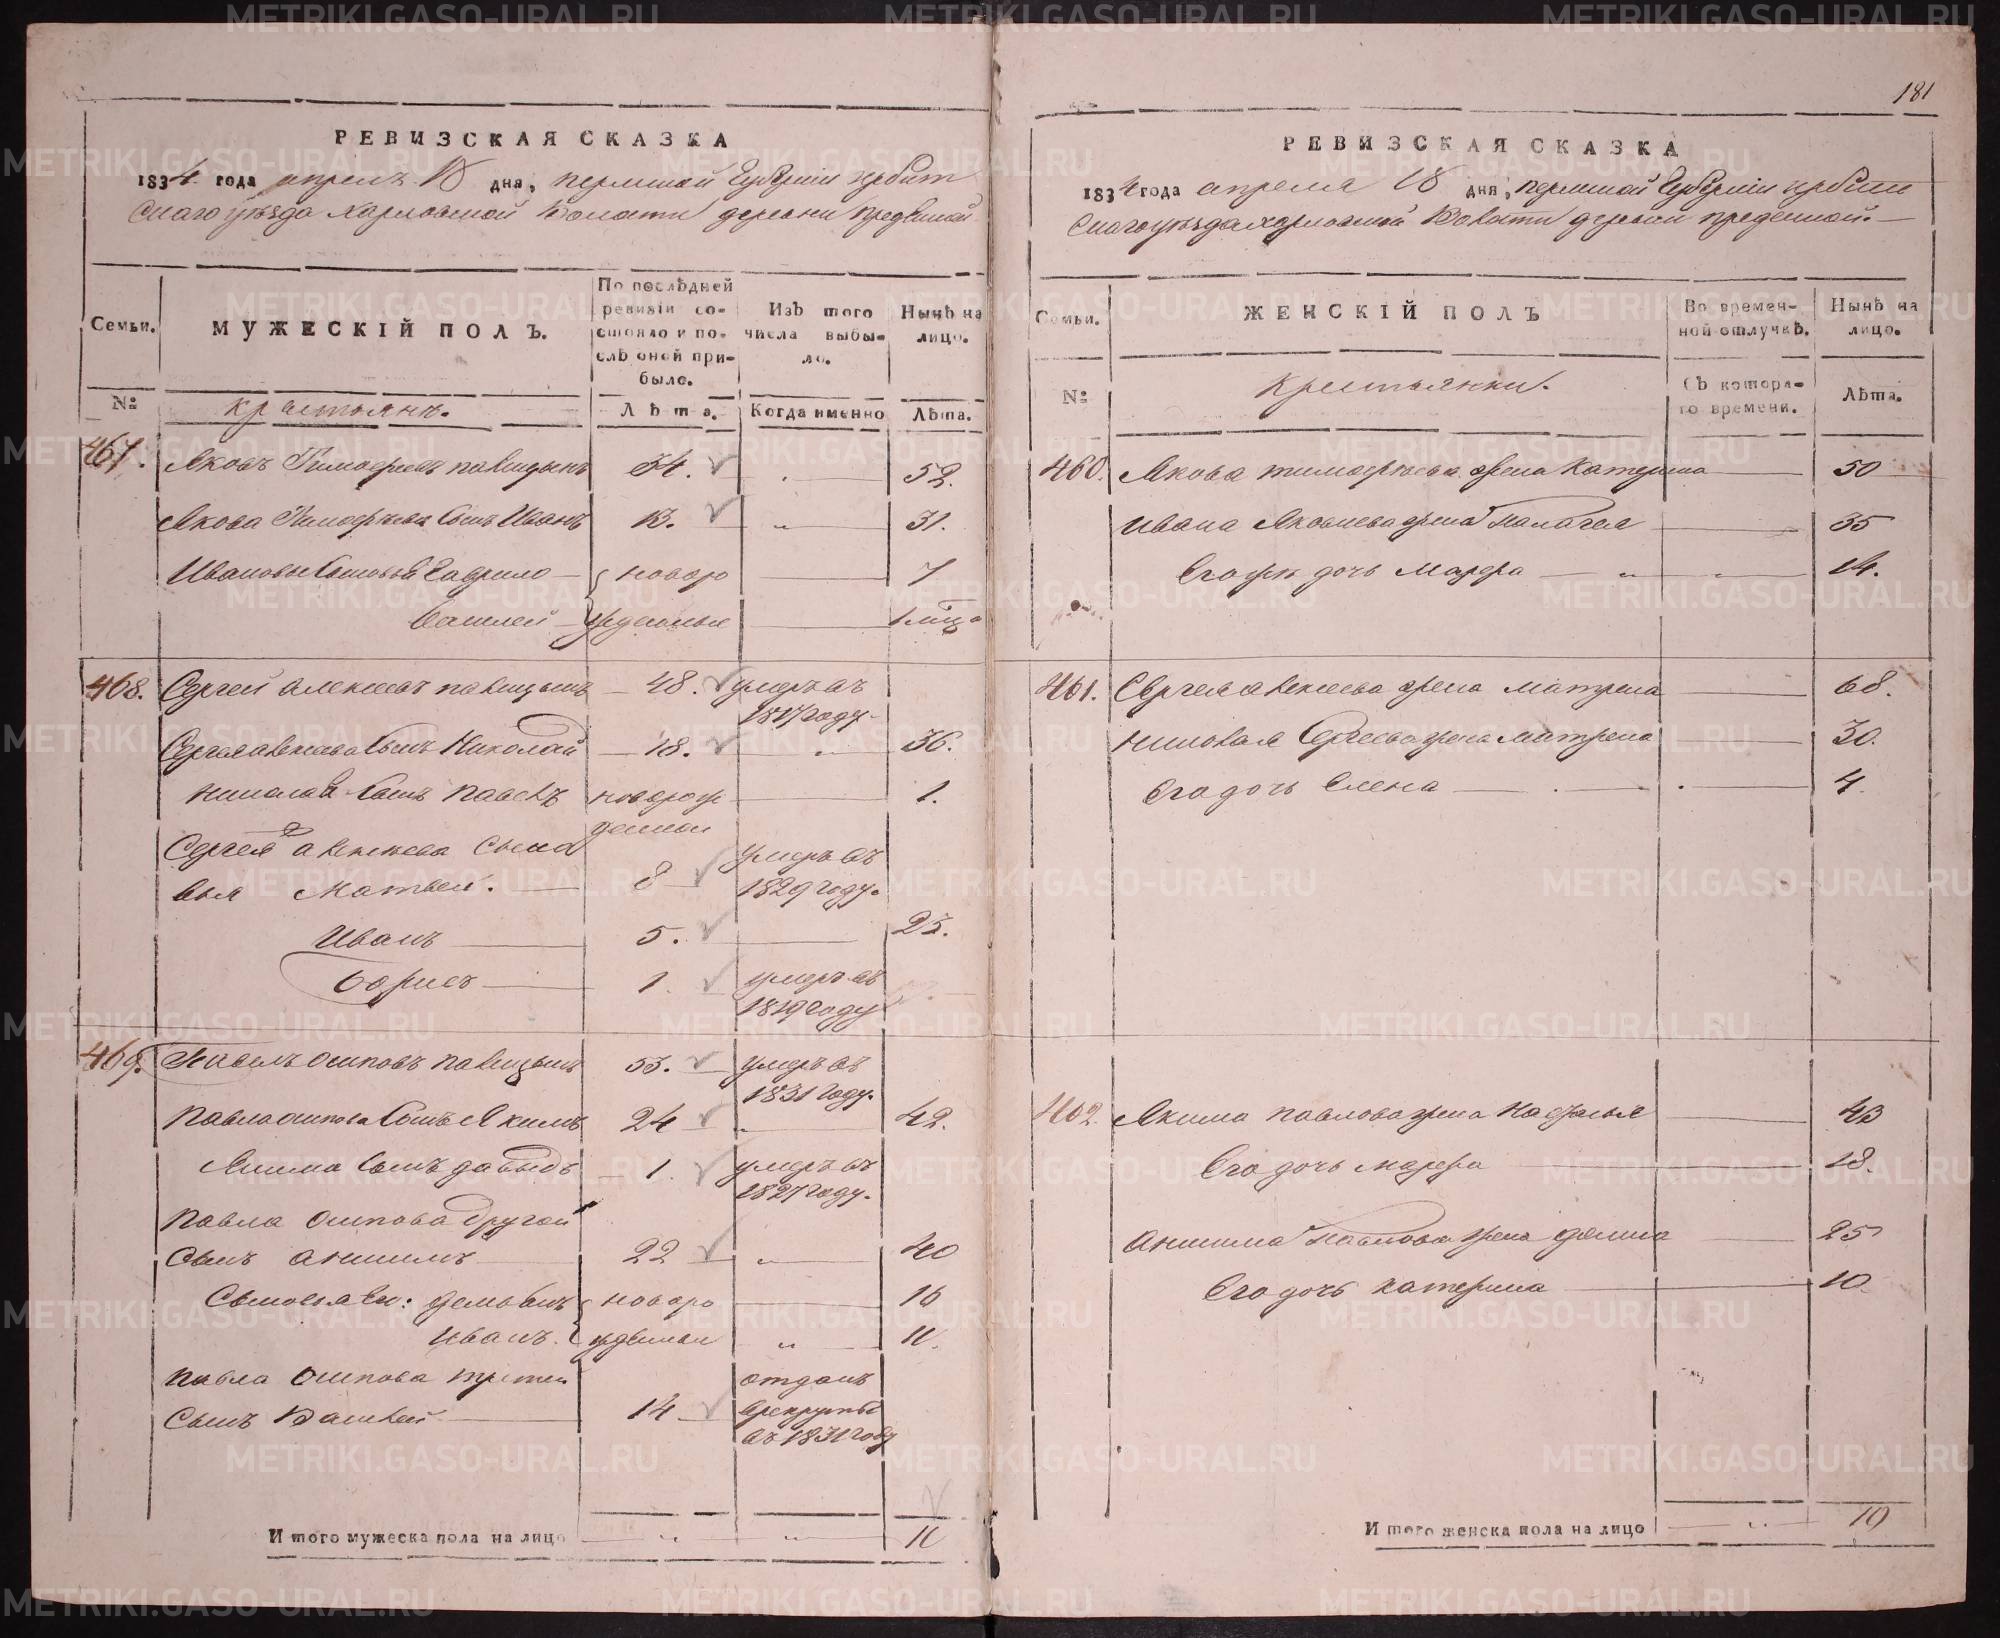 181
РЕВИЗСКАЯ СКАЗКА
1834 года апреля 18 дня, пермской Губернии ирбит
скаго уезда Харловской Волости деревни
Семьи.
МУЖЕСКІЙ ПОЛЪ.
По послѣдней ревизіи состояло и послѣ оной прибыло.
Изъ того числа выбыло.
Нынѣ на лицо.
№
крестьянъ.
Лѣта.
Когда именно
Лѣта.
467. Яковъ Тимофеевъ 34. 52.
Якова Тимофеева Сынъ Иванъ 13. „ 31.
Ивановы Сыновья Гаврило новоро 7
Василей жденные
468. Сергей алексеевъ 48. умеръ въ
1817 году.
Сергея алексеева Сынъ Николай 18. „ 36.
Сынъ павелъ новорож 1.
Сергея алексеева Сыно денной
вья Матвей. 8 умеръ въ
1829 году.
Иванъ 5. 23.
Борисъ 1. умеръ въ
1819 году
469. Павелъ осиповъ 53. умеръ въ
1831 году.
Павла осипова Сынъ Якимъ 24 42.
Якима Сынъ давыдъ 1. умеръ въ
1827 году.
Павла Осипова другой
Сынъ анисимъ 22 „ 40
Сыновья новоро 16
Иванъ. жденныи „ 11.
Павла Осипова третей отданъ
Сынъ Василей 14 врекруты
въ 1831 году
Итого мужеска пола на лицо „ „ 11
РЕВИЗСКАЯ СКАЗКА
1834 года апреля 18 дня, пермской Губернии ирбит
скаго уезда харловской Волости деревни
Семьи.
ЖЕНСКІЙ ПОЛЪ
Во временной отлучкѣ.
Нынѣ на лицо.
№
Крестьянки.
Съ котораго времени.
Лѣта.
460. Якова тимофеева жена Катерина 50
Ивана Яковлева жена Палагея 35
Егожъ дочь Марфа „ „ 14.
461. Сергея алексеева жена Матрена 68.
Николая Сергеева жена Матрена 30.
Его дочь Елена 4
462. Якима павлова жена Настасья 43
Его дочь марфа 18.
Анисима Павлова жена 25
Его дочь катерина 10.
Итого женска пола на лицо „ 10
METRIKI.GASO-URAL.RU